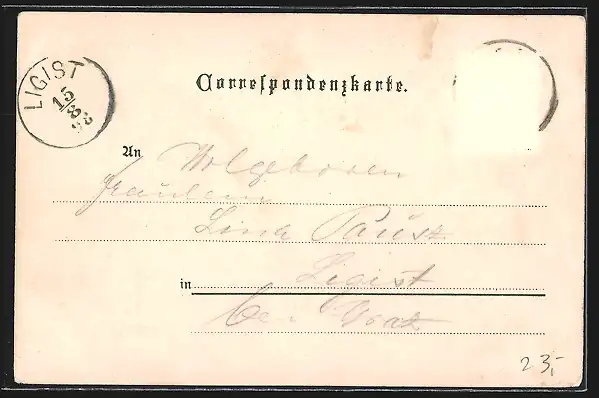 LIGIST
15/8
98
Correspondenzkarte.
An Wolgeboren
Fräulein
Lina Paust
in Ligist
bei Graz
23,-